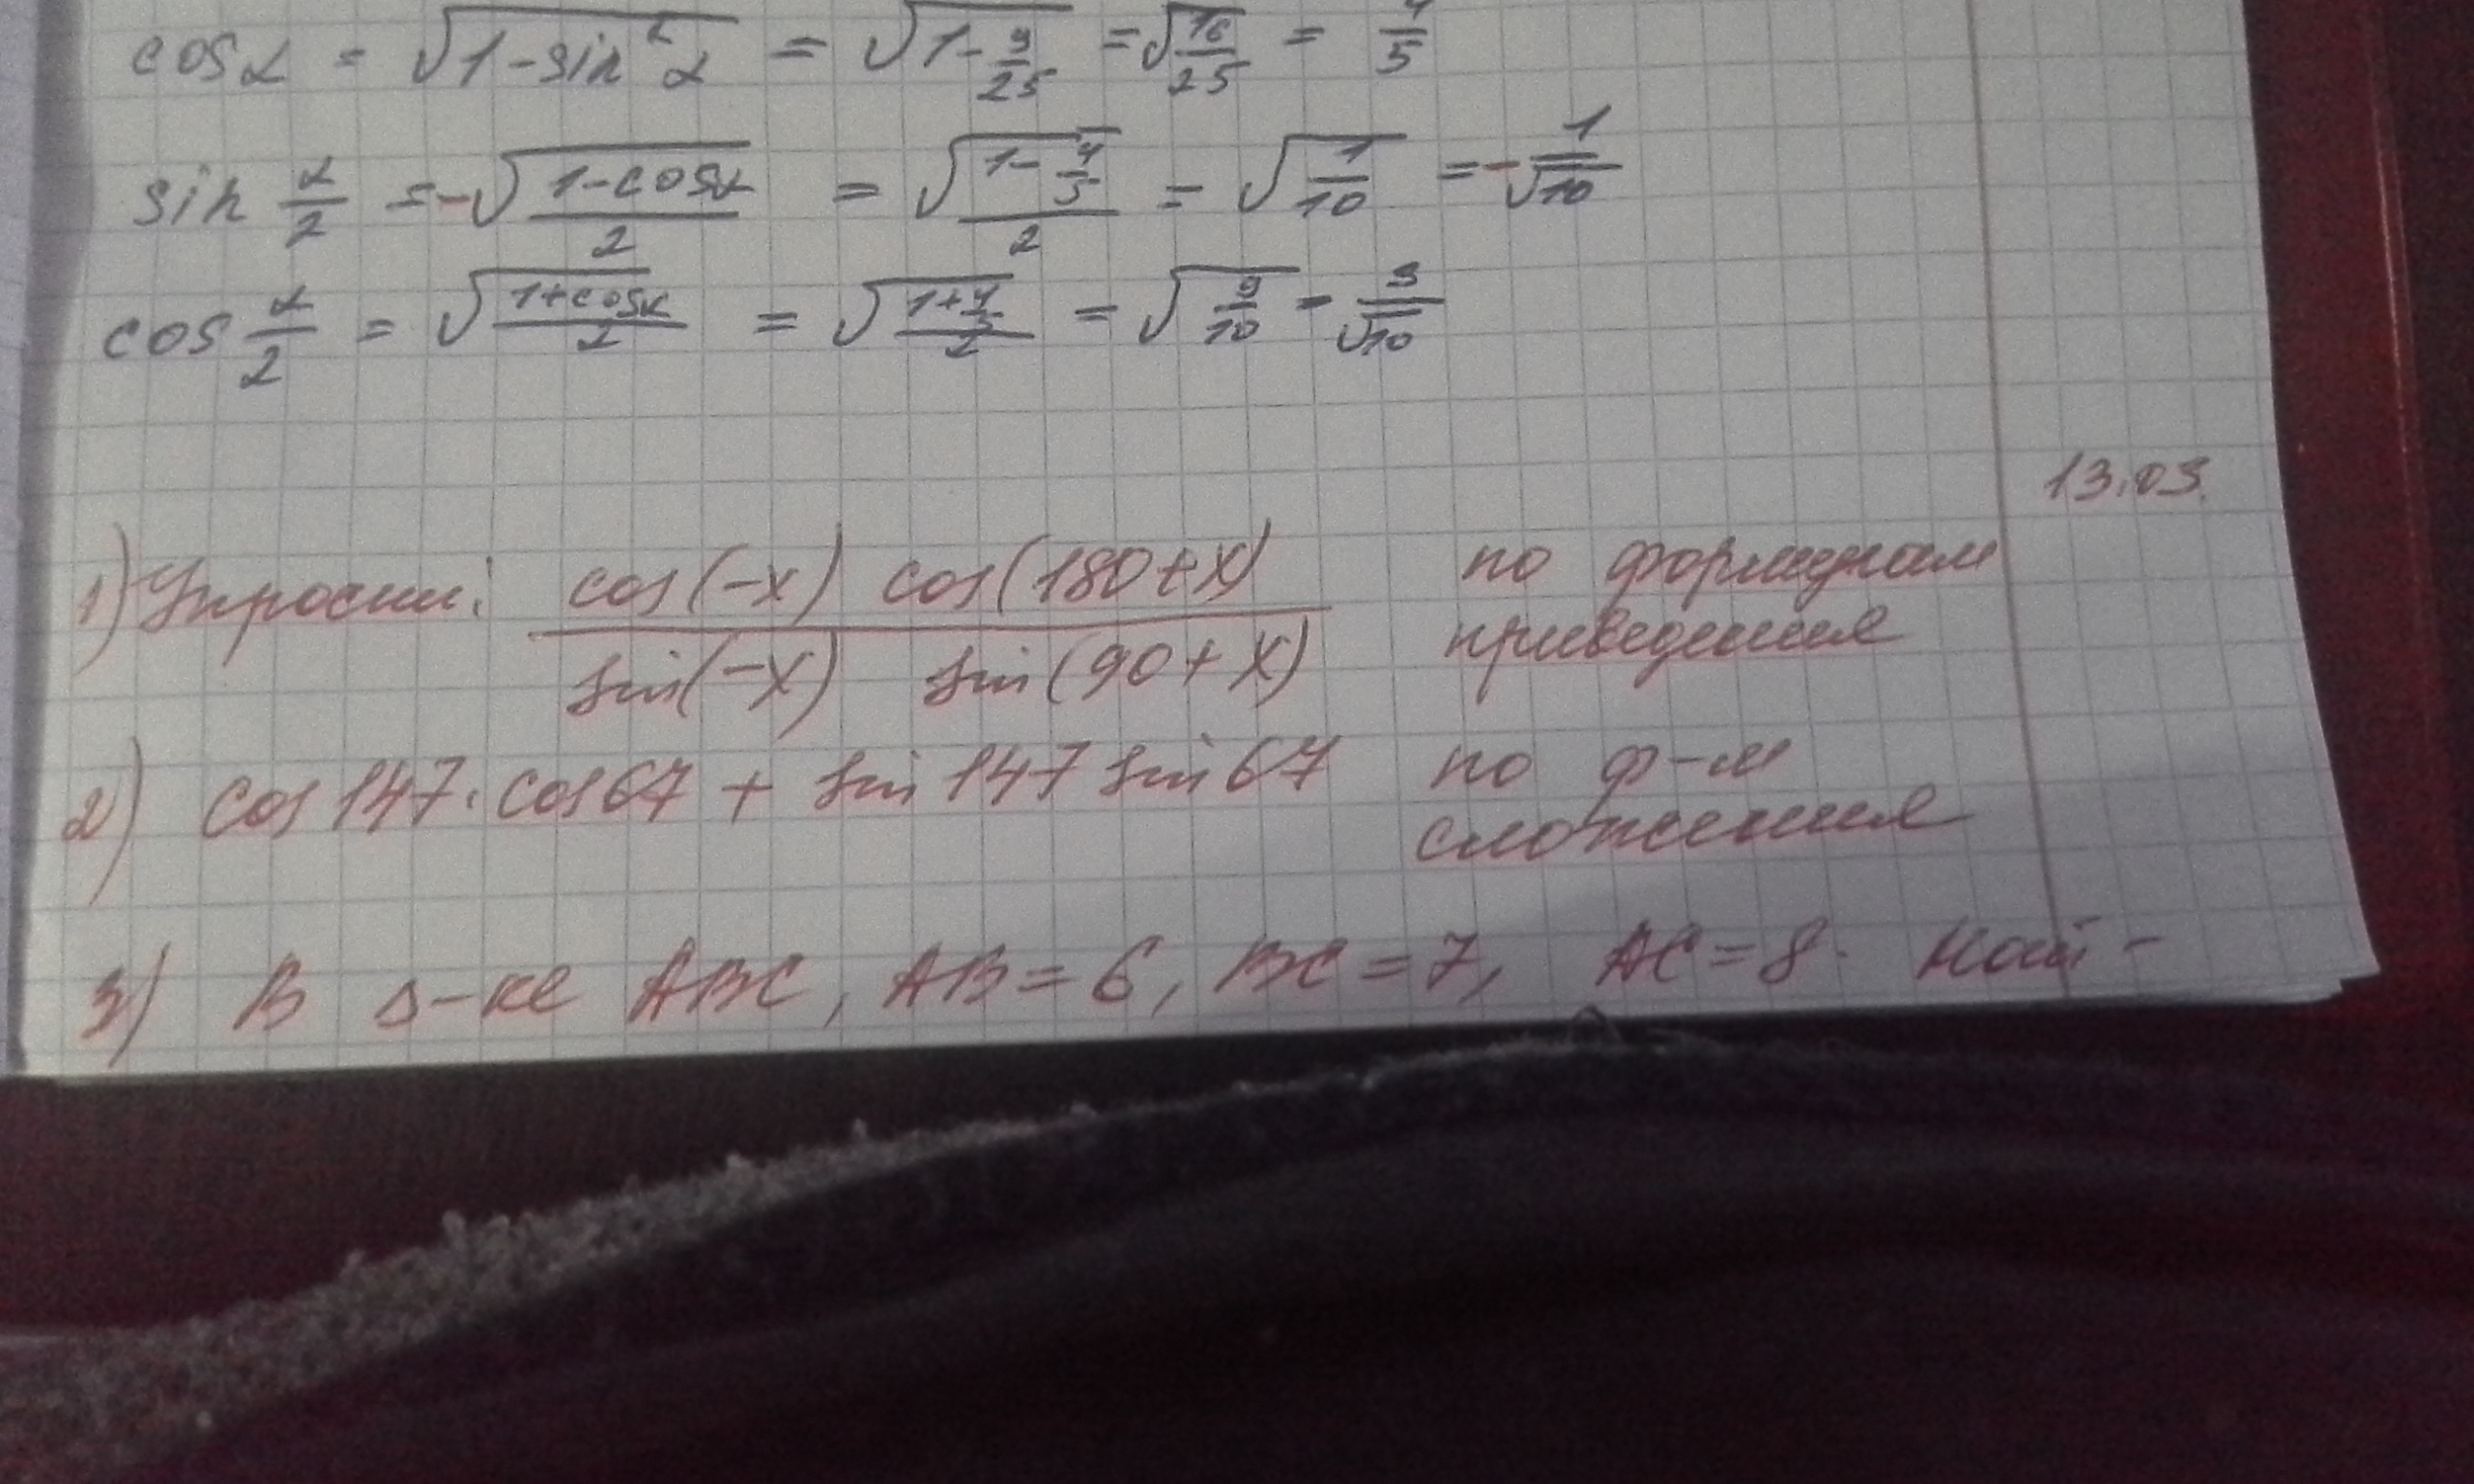 cosα = √(1-sin²α) = √(1-9/25) = √(16/25) = 4/5
sin α/2 = -√((1-cosα)/2) = √((1-4/5)/2) = √(1/10) = -1/√10
cos α/2 = √((1+cosα)/2) = √((1+4/5)/2) = √(9/10) = 3/√10
13.03.
1) Упрости: (cos(-x) cos(180+x))/(sin(-x) sin(90+x)) по формулам приведения
2) cos147·cos67 + sin147 sin67 по ф-м сложения
3) В Δ-ке ABC, AB=6, BC=7, AC=8. Най-